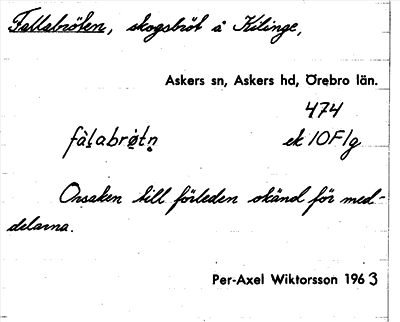 Fallabröten, skogsbröt å Kilinge,
Askers sn, Askers hd, Örebro län.
474
fàḷabrø̣tṇ ek 10F1g
Orsaken till förleden okänd för med-
delarna.
Per-Axel Wiktorsson 1963